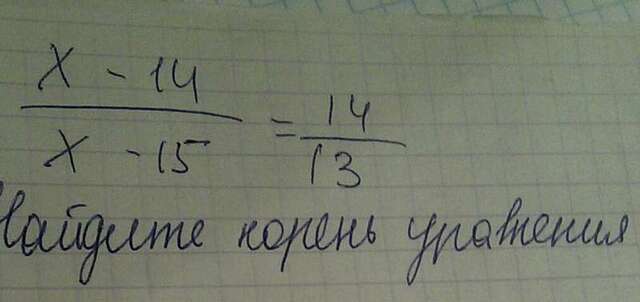 x - 14
x - 15
=
14
13
Найдите корень уравнения